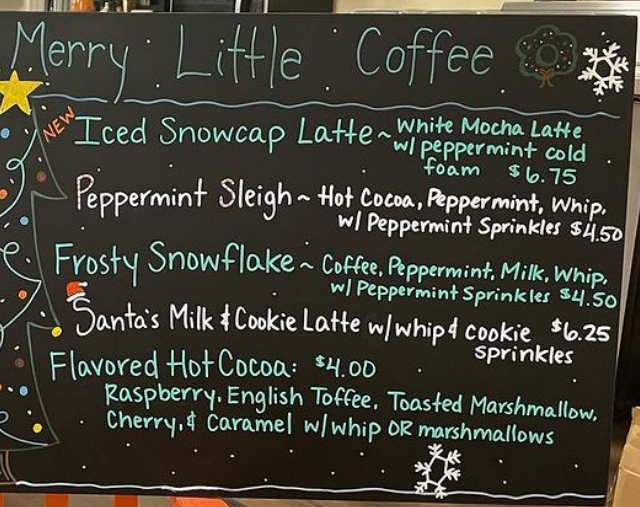 Merry Little Coffee
NEW Iced Snowcap Latte ~ White Mocha Latte
w/ peppermint cold
foam $6.75
Peppermint Sleigh ~ Hot Cocoa, Peppermint, Whip,
w/ Peppermint Sprinkles $4.50
Frosty Snowflake ~ Coffee, Peppermint, Milk, Whip,
w/ Peppermint Sprinkles $4.50
Santa's Milk & Cookie Latte w/ whip & cookie $6.25
sprinkles
Flavored Hot Cocoa: $4.00
Raspberry, English Toffee, Toasted Marshmallow,
Cherry, & Caramel w/ whip OR marshmallows